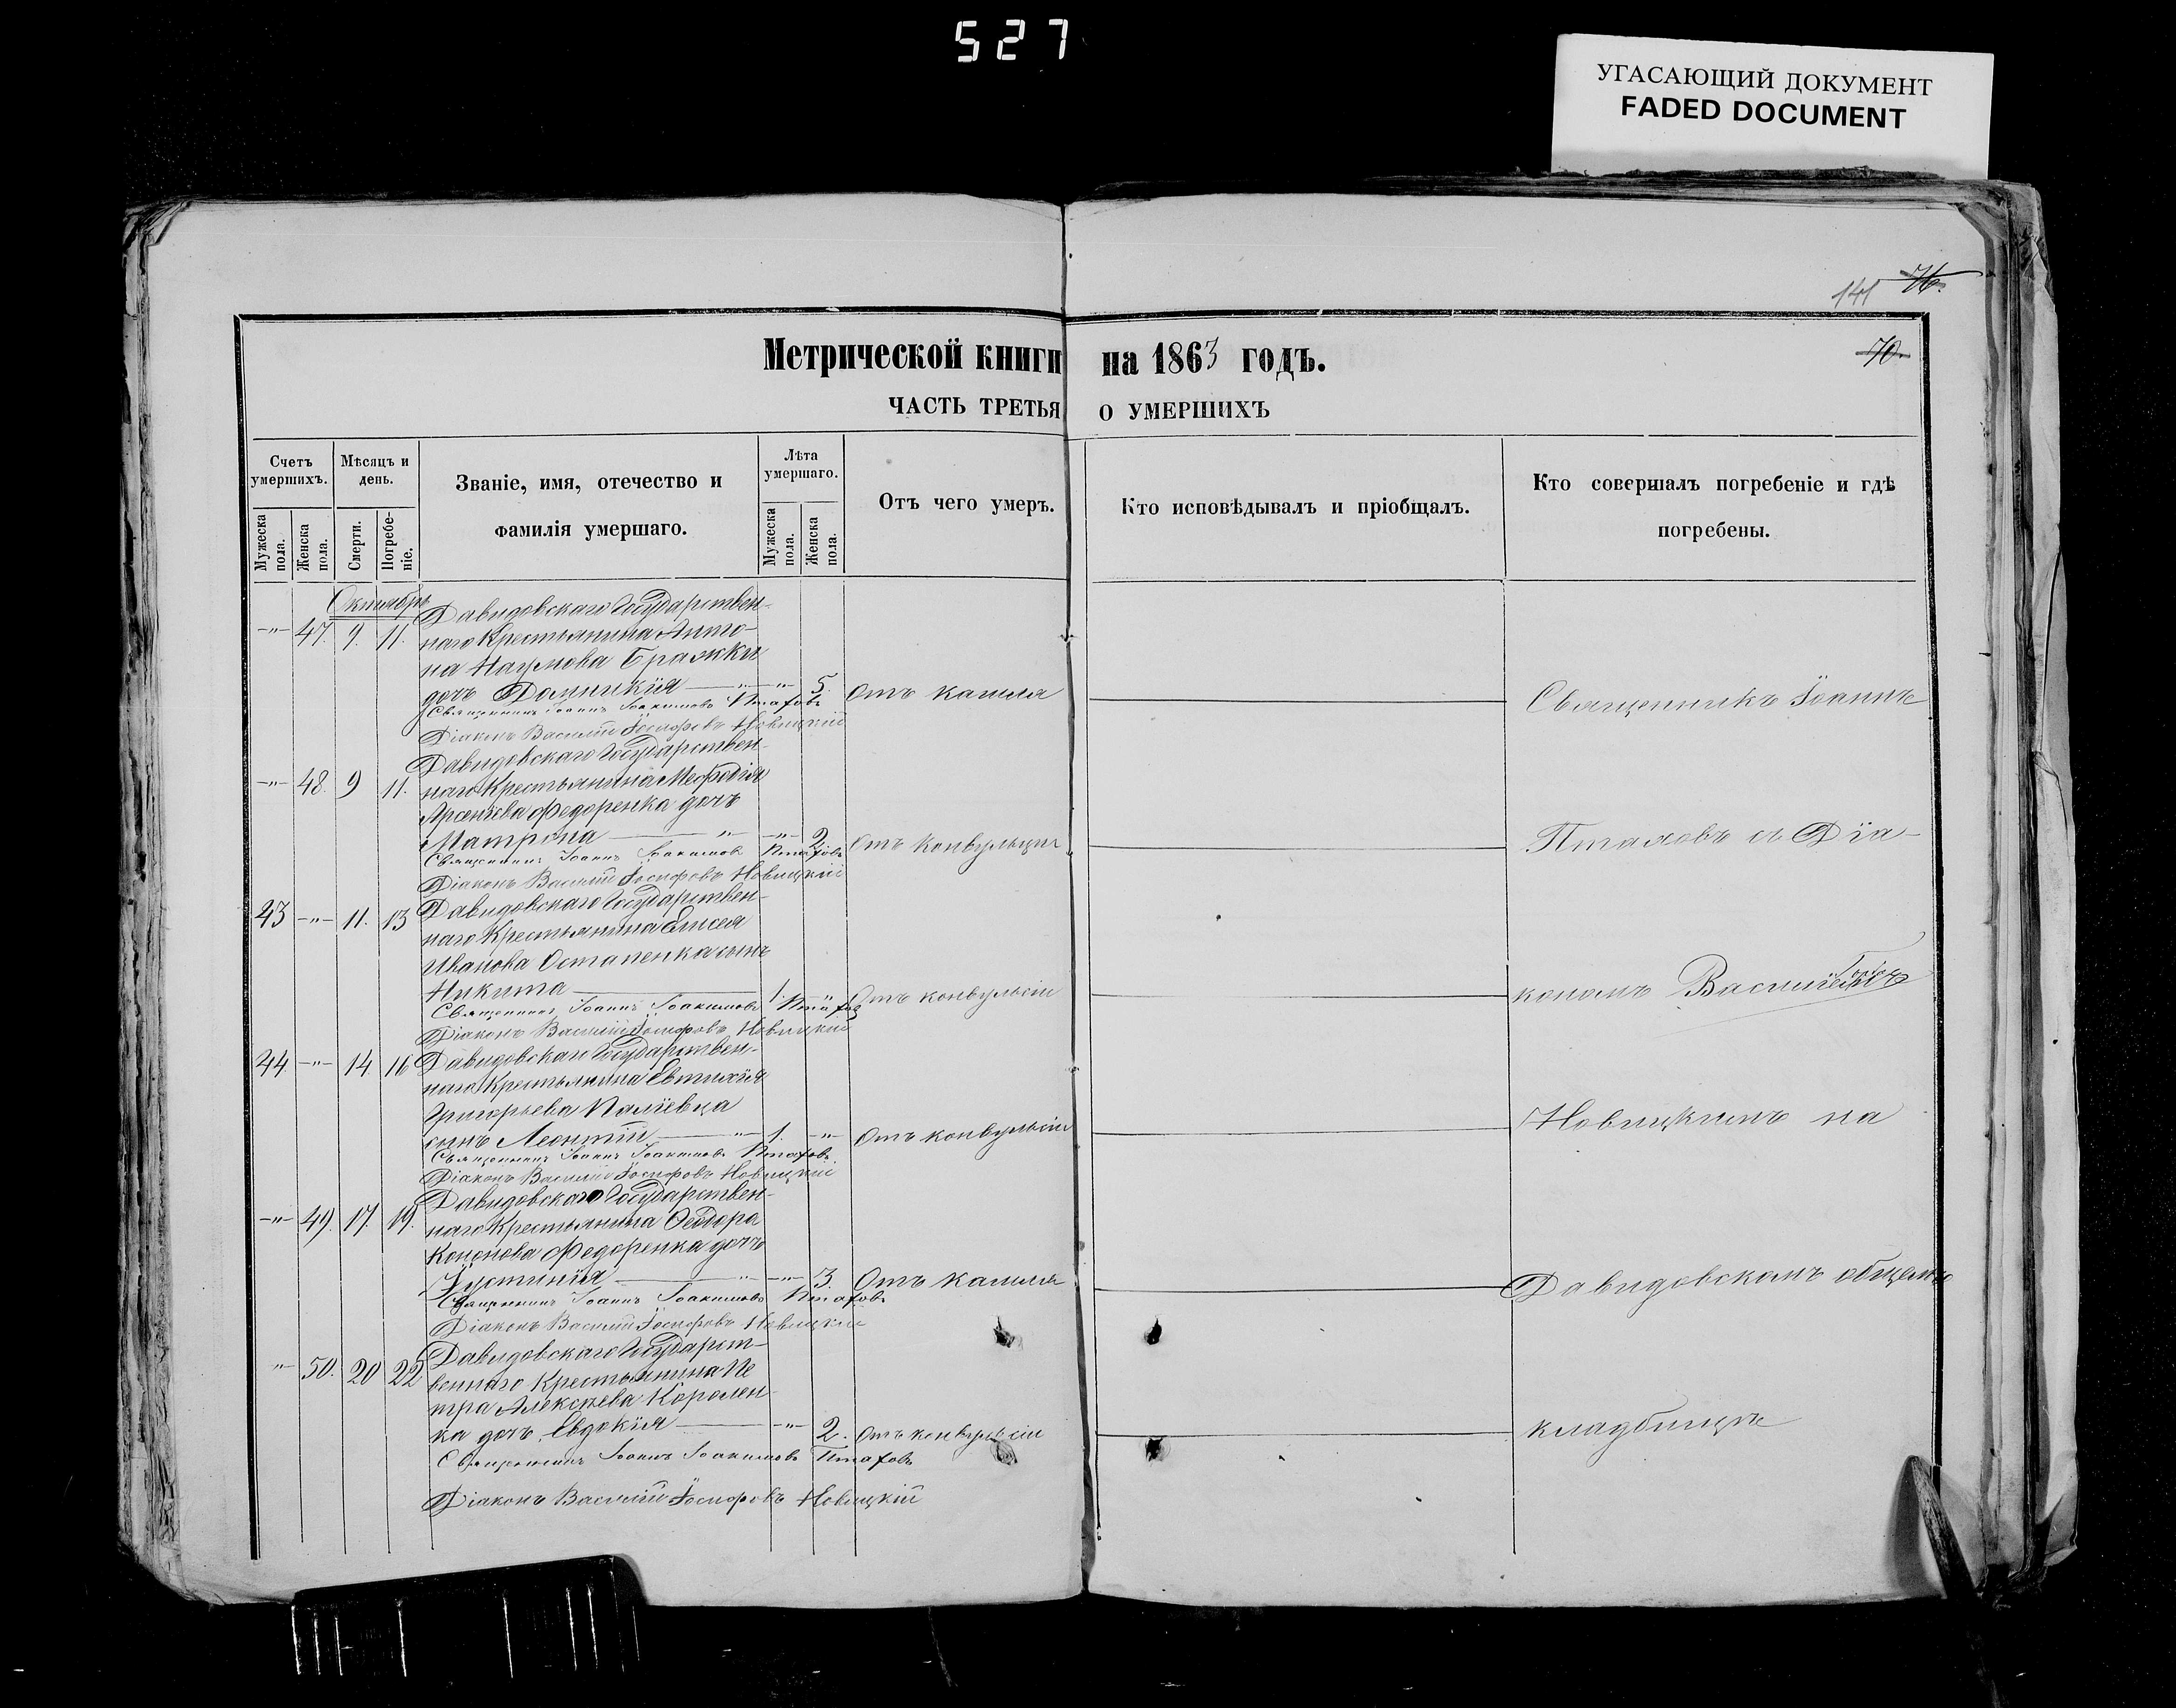 527
УГАСАЮЩИЙ ДОКУМЕНТ
FADED DOCUMENT
141 76.
Метрической книги на 1863 годъ.
70.
ЧАСТЬ ТРЕТЬЯ О УМЕРШИХЪ
Счетъ умершихъ.
Мѣсяцъ и день.
Званіе, имя, отечество и фамилія умершаго.
Лѣта умершаго.
Отъ чего умеръ.
Кто исповѣдывалъ и пріобщалъ.
Кто совершалъ погребеніе и гдѣ погребены.
Мужеска пола.
Женска пола.
Смерти.
Погребеніе.
Мужеска пола.
Женска пола.
Октябрь
Давидовскаго Государствен-
-"- 47. 9. 11. наго Крестьянина Анто-
на Наумова Бражки
дочь Домникія -"- 5. Отъ кашля Священникъ Іоаннъ
Священникъ Іоаннъ Іоакимовъ Птаховъ
Діаконъ Василій Іосифовъ Новицкій
Давидовскаго Государствен-
-"- 48. 9 11. наго Крестьянина Мефодія
Арсеніева Федоренка дочь
Матрона " -"- 2 Отъ конвульціи Птаховъ съ Діа-
Священникъ Іоаннъ Іоакимовъ Птаховъ
Діаконъ Василій Іосифовъ Новицкій
43 -"- 11. 13 Давидовскаго Государствен-
наго Крестьянина Елисея
Иванова Остапенка сынъ
Никита 1. -"- Отъ конвульсіи кономъ Василіемъ
Священникъ Іоаннъ Іоакимовъ Птаховъ
Діаконъ Василій Іосифовъ Новицкій
44 -"- 14. 16 Давидовскаго Государствен-
наго Крестьянина Евтихія
Григорьева Паліевца
сынъ Леонтій " 1. -"- Отъ конвульсіи Новицкимъ на
Священникъ Іоаннъ Іоакимовъ Птаховъ
Діаконъ Василій Іосифовъ Новицкій
Давидовскаго Государствен-
-"- 49. 17. 19. наго Крестьянина Ѳеодора
Кононова Федоренка дочь
Іустинія " -"- 3. Отъ кашля Давидовскомъ общемъ
Священникъ Іоаннъ Іоакимовъ Птаховъ
Діаконъ Василій Іосифовъ Новицкій
Давидовскаго Государст-
" 50. 20 22 веннаго Крестьянина Пе
тра Алексѣева Королен-
ка дочь Евдокія -"- 2. Отъ конвульсіи кладбищѣ
Священникъ Іоаннъ Іоакимовъ Птаховъ
Діаконъ Василій Іосифовъ Новицкій